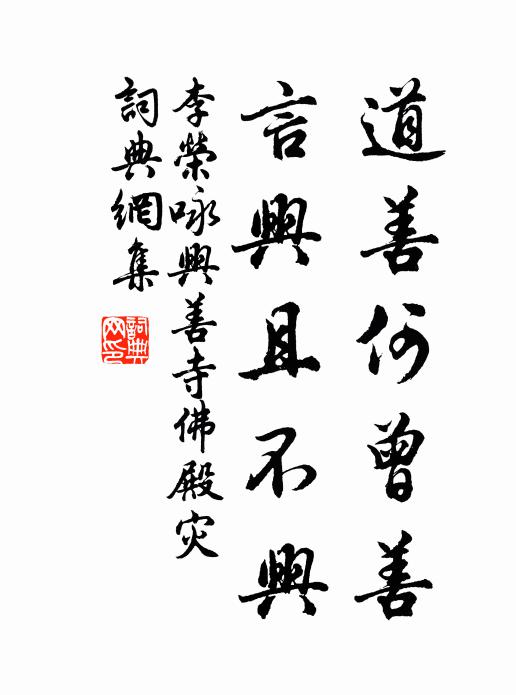 道善何曾善
言興且不興
李榮咏興善寺佛殿灾
詞典網集
詞典網印